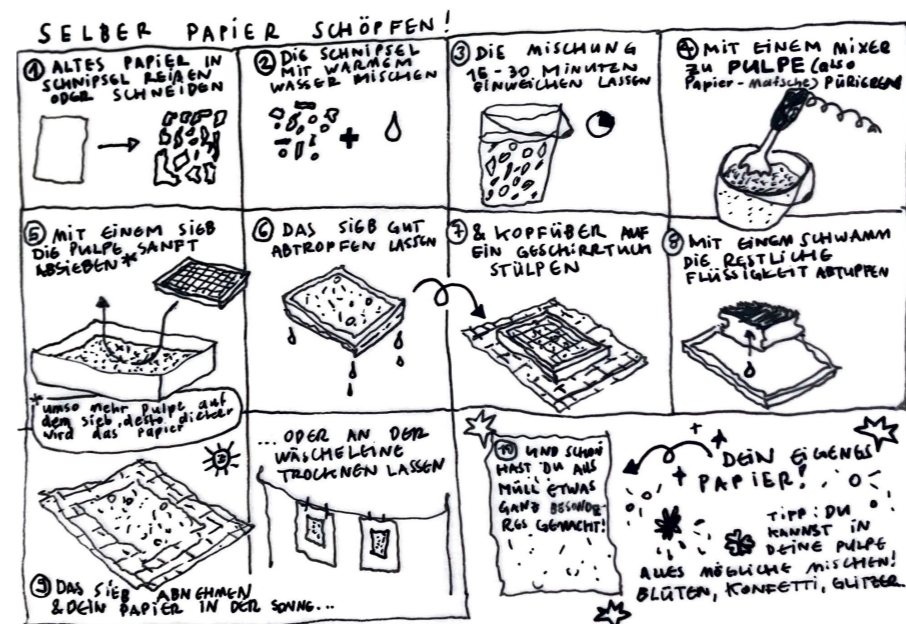 SELBER PAPIER SCHÖPFEN!
① ALTES PAPIER IN
SCHNIPSEL REIßEN
ODER SCHNEIDEN
② DIE SCHNIPSEL
MIT WARMEM
WASSER MISCHEN
③ DIE MISCHUNG
15-30 MINUTEN
EINWEICHEN LASSEN
④ MIT EINEM MIXER
ZU PULPE (also
Papier-Matsche) PÜRIEREN
⑤ MIT EINEM SIEB
DIE PULPE SANFT
ABSIEBEN*
* umso mehr Pulpe auf
dem Sieb, desto dicker
wird das Papier
⑥ DAS SIEB GUT
ABTROPFEN LASSEN
⑦ & KOPFÜBER AUF
EIN GESCHIRRTUCH
STÜLPEN
⑧ MIT EINEM SCHWAMM
DIE RESTLICHE
FLÜSSIGKEIT ABTUPFEN
⑨ DAS SIEB ABNEHMEN
& DEIN PAPIER IN DER SONNE...
...ODER AN DER
WÄSCHELEINE
TROCKNEN LASSEN
⑩ UND SCHON
HAST DU AUS
MÜLL ETWAS
GANZ BESONDE-
RES GEMACHT!
DEIN EIGENES
PAPIER!
TIPP: DU
KANNST IN
DEINE PULPE
ALLES MÖGLICHE MISCHEN!
BLÜTEN, KONFETTI, GLITZER.